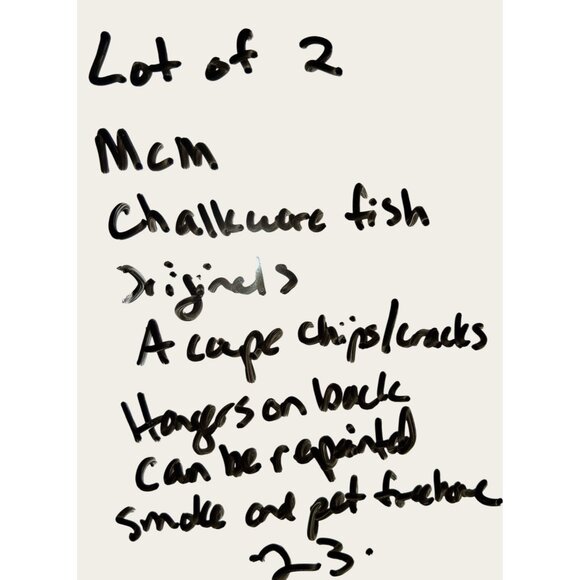 Lot of 2
McM
Chalkware fish
originals
A coupe chips/cracks
Hangers on back
can be repainted
smoke and pet free home
23.